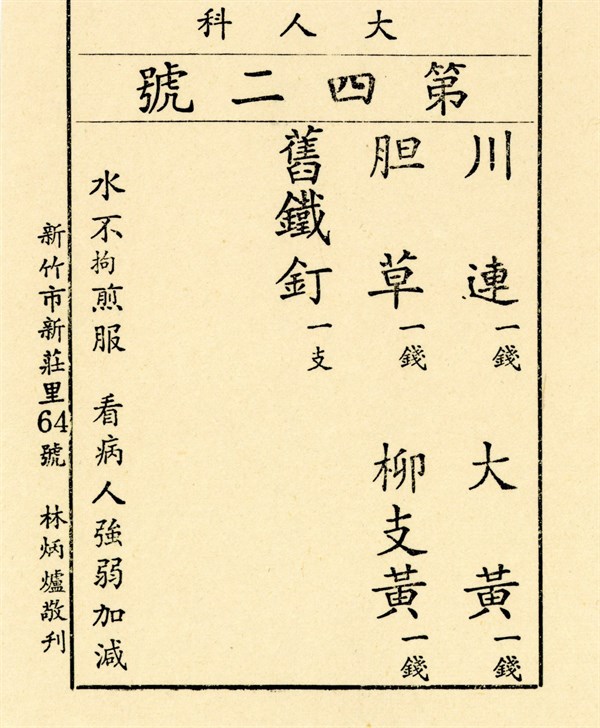 大人科
第四二號
川連一錢 大黃一錢
胆草一錢 柳支黃一錢
舊鐵釘一支
水不拘煎服 看病人強弱加減
新竹市新莊里64號 林炳爐敬刊